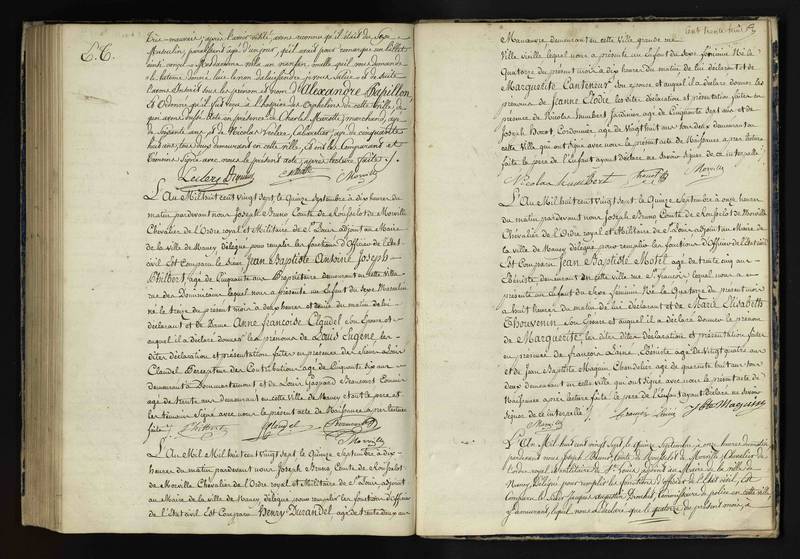 E.T.
paraissant âgé d'un jour, qu'il avait pour remarque un billet
prénom et nom d'Alexandre Papillon,
Et ordonné qu'il fût reçu à l'hospice des Orphelins de cette ville, de
quoi avons dressé acte en présence de Charles Mariotte, marchand, âgé
de soixante ans, et de Nicolas Leclerc, Cabaretier, âgé de cinquante
huit ans, tous deux demeurant en cette ville, Et ont les Comparant et
témoins signé avec nous le présent acte, après lecture faite.
Morville
L'An Mil huit cent vingt sept le Quinze Septembre à dix heures du
matin pardevant nous Joseph Bruno Comte de Rousselot de Morville
Chevalier de l'Ordre royal et Militaire de St Louis adjoint au Maire
de la ville de Nancy délégué pour remplir les fonctions d'Officier de l'Etat
civil Est Comparu le Sieur Jean Baptiste Antoine Joseph
Philbert, âgé de Cinquante ans Propriétaire demeurant en cette ville
rue des Dominicains lequel nous a présenté un Enfant du sexe Masculin
né le treize du présent mois à deux heures et demie du matin de lui
déclarant et de Dame Anne françoise Claudel son Epouse et
auquel il a déclaré donner les prénoms de Louis Eugène, les
dites déclaration et présentation faites en présence de Sieur Louis
Claudel Percepteur des Contributions âgé de Cinquante six ans
demeurant à Bonneventuremont et de Louis Gaspard Beaumont
âgé de trente ans demeurant en cette Ville de Nancy et ont le père et
les témoins Signé avec nous le présent acte de Naissance après lecture
faite
Philbert Claudel
Morville
L'An Mil huit cent vingt sept le Quinze Septembre à dix
heures du matin pardevant nous Joseph Bruno Comte de Rousselot
de Morville Chevalier de l'Ordre royal et Militaire de St Louis adjoint
au Maire de la ville de Nancy délégué pour remplir les fonctions d'Officier
de l'Etat civil Est Comparu Henry Durandel, âgé de trente deux ans
Manœuvre demeurant en cette Ville grande rue
Ville vieille lequel nous a présenté un Enfant du sexe féminin Né le
Quatorze du présent mois à dix heures du matin de lui déclarant et de
Marguerite Canteneur son épouse et auquel il a déclaré donner les
prénoms de Jeanne Elodie les dites déclaration et présentation faites en
présence de Nicolas Humbert Jardinier âgé de Cinquante sept ans et de
Joseph Cordonnier âgé de Vingt huit ans tous deux demeurant en
cette Ville qui ont signé avec nous le présent acte de Naissance après lecture
faite le père de l'Enfant ayant déclaré ne savoir signer de ce interpellé
Nicolas humbert
Morville
L'An Mil huit cent vingt sept le Quinze Septembre à onze heures
du matin pardevant nous Joseph Bruno Comte de Rousselot de Morville
Chevalier de l'Ordre royal et Militaire de St Louis adjoint au Maire de
la ville de Nancy délégué pour remplir les fonctions d'Officier de l'Etat civil
Est Comparu Jean Baptiste Motel âgé de trente cinq ans
Ebéniste demeurant en cette ville rue St françois lequel nous a
présenté un Enfant du Sexe féminin Né le Quatorze du présent mois
à huit heures du matin de lui déclarant et de Marie Elisabeth
Thouvenin son épouse et auquel il a déclaré donner le prénom
de Marguerite les dites déclaration et présentation faites
en présence de françois Laine, Ebéniste âgé de Vingt quatre ans
et de Jean Baptiste Maguin Chandelier âgé de quarante huit ans tous
deux demeurant en cette ville qui ont Signé avec nous le présent acte de
Naissance après lecture faite le père de l'Enfant ayant déclaré ne savoir
signer de ce interpellé
françois Jbte Maguin
Morville
L'An Mil huit cent vingt sept, le quinze Septembre à onze heures du matin
pardevant nous Joseph Bruno Comte de Rousselot de Morville, Chevalier de
l'ordre royal et militaire de St Louis adjoint au Maire de la ville de
Nancy, Délégué pour remplir les fonctions d'officier de l'Etat civil, Est
Comparu le Sieur Jacques Augustin Commissaire de police en cette ville
y demeurant, lequel nous a déclaré que le quatorze du présent mois, à